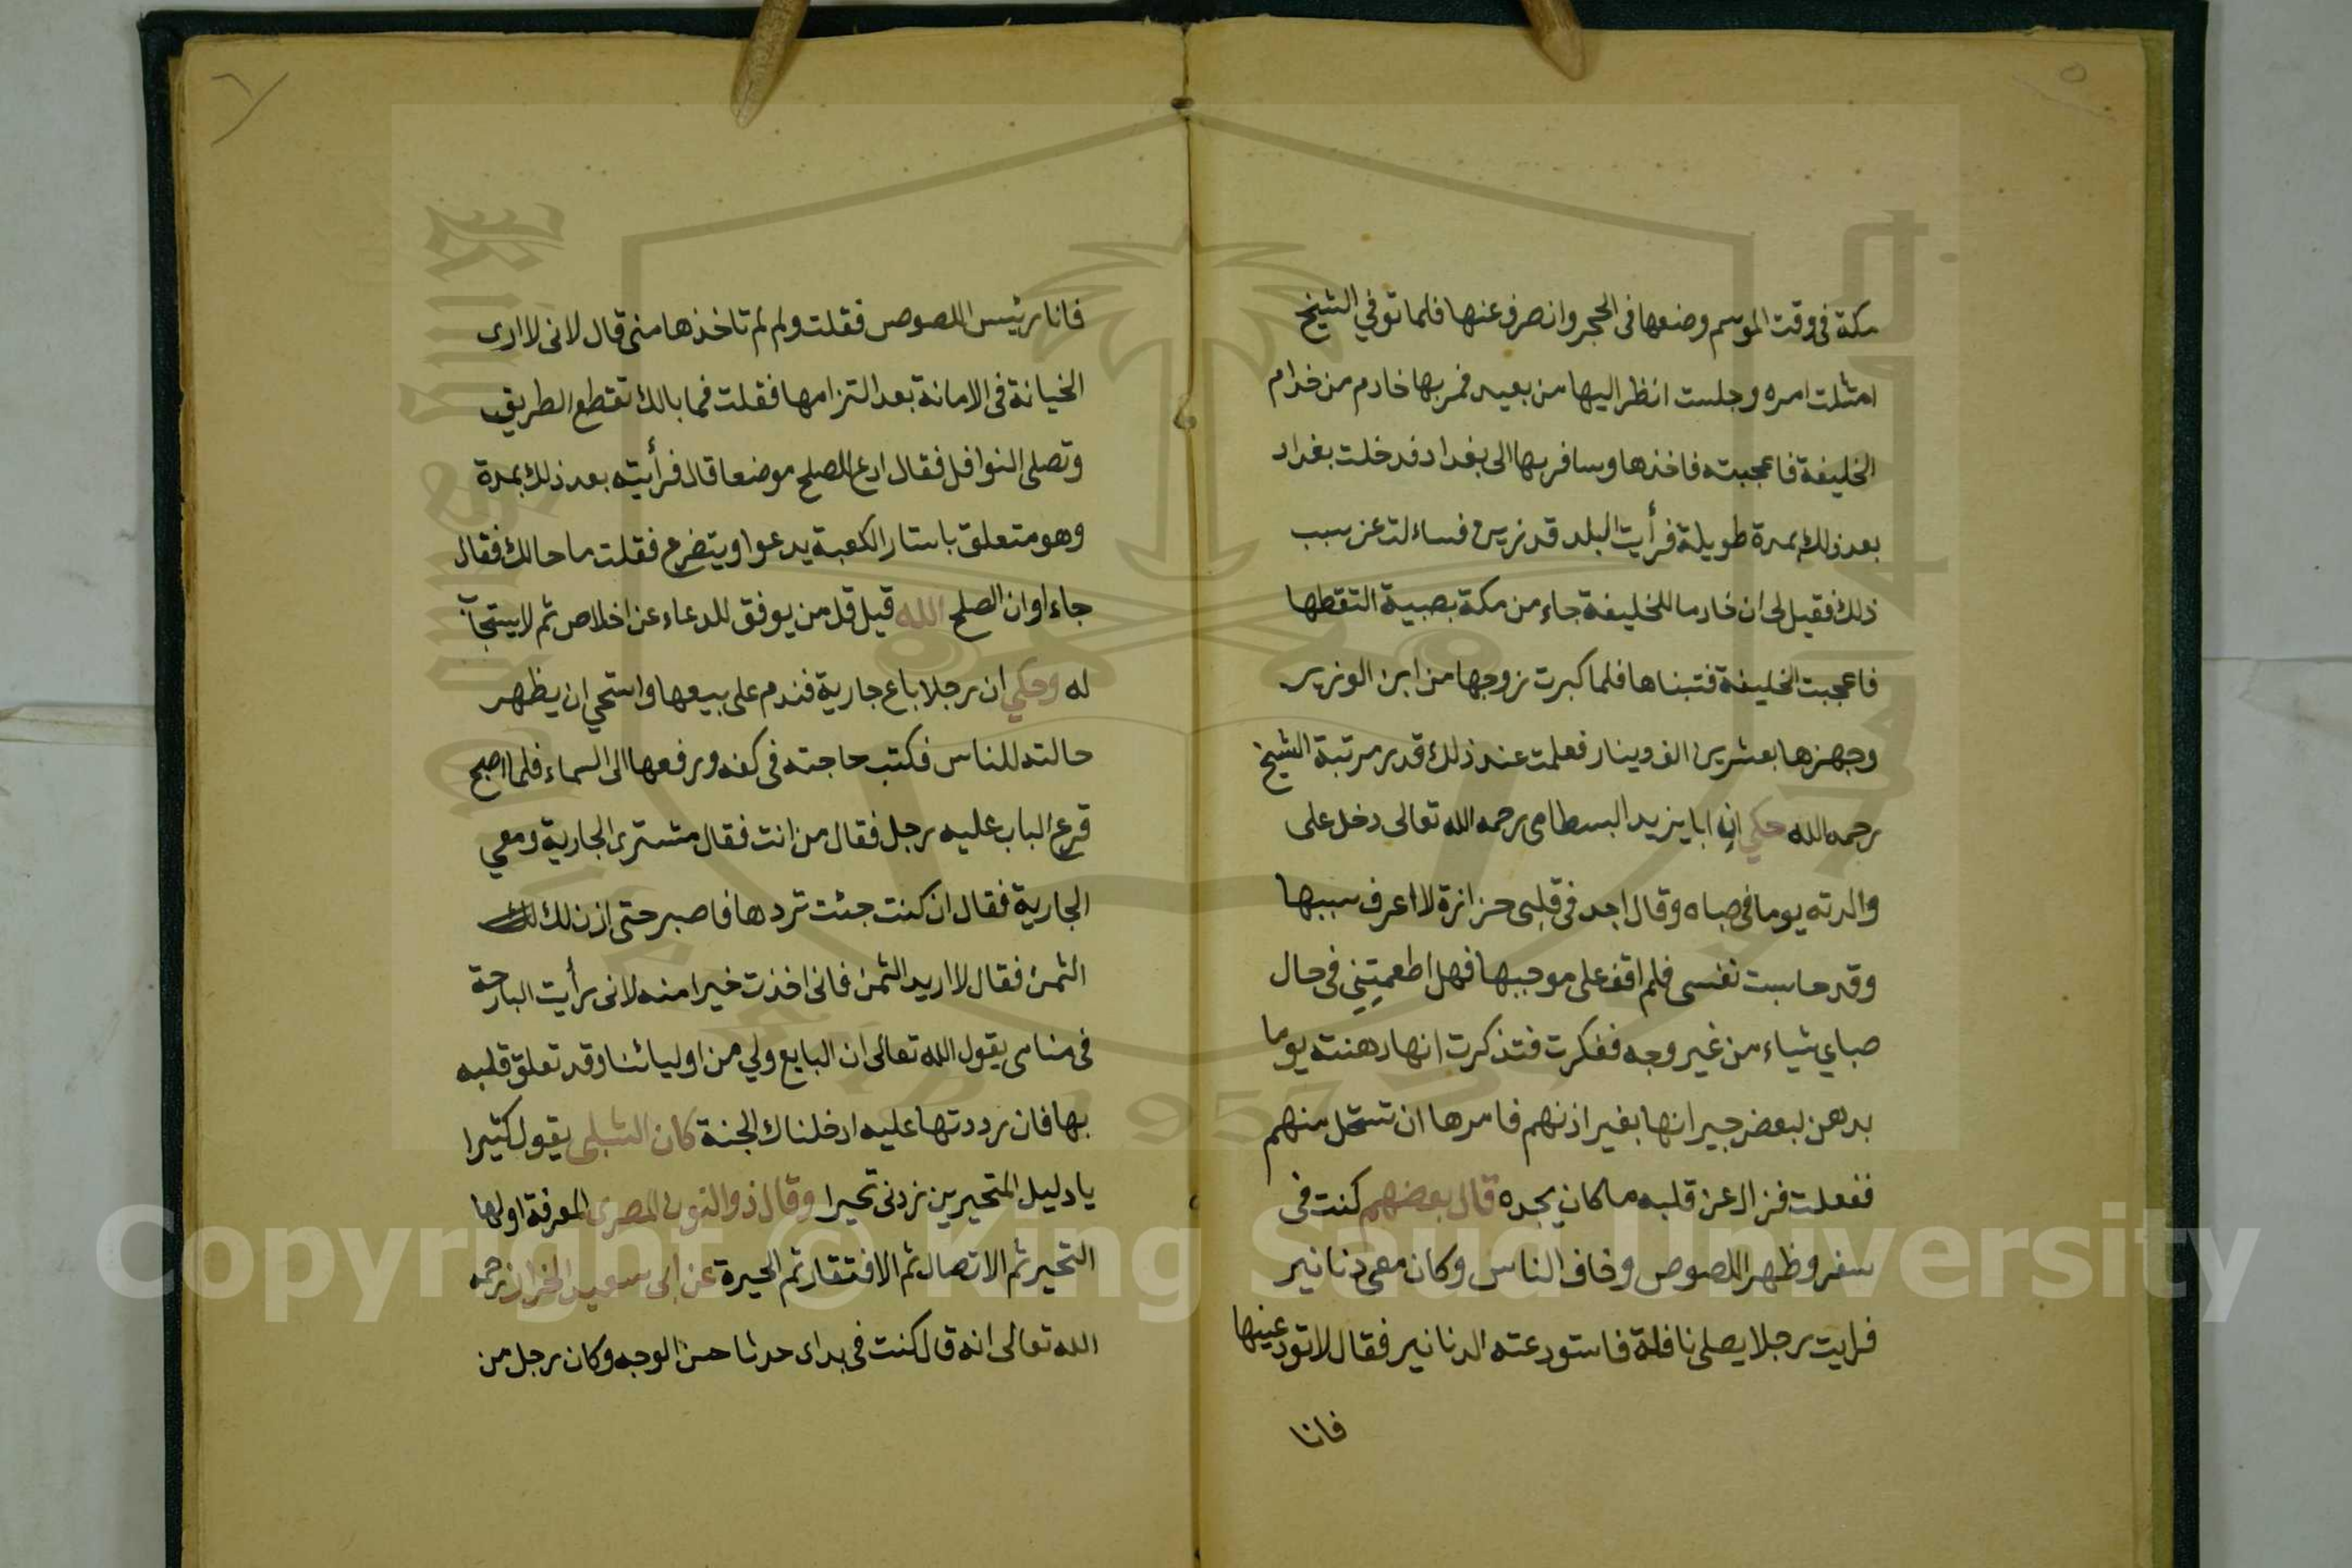 مكة فى وقت الموسم وضعها فى الحجر وانصرف عنها فلما توفي الشيخ
امتثلت امره وجلست انظر اليها من بعيد فمر بها خادم من خدام
الخليفة فاعجبته فاخذها وسافر بها الى بغداد فدخلت بغداد
بعد ذلك بمدة طويلة فرأيت البلد قد زين فساءلت عن سبب
ذلك فقيل لى ان خادما للخليفة جاء من مكة بصبية التقطها
فاعجبت الخليفة فتبناها فلما كبرت زوجها من ابن الوزير
وجهزها بعشرين الف دينار فعلمت عند ذلك قدر مرتبة الشيخ
رحمه الله حكي ان ابا يزيد البسطامى رحمه الله تعالى دخل على
والدته يوما فى صباه وقال اجد فى قلبى حزازة لا اعرف سببها
وقد حاسبت نفسى فلم اقف على موجبها فهل اطعمتِنى فى حال
صباي شياء من غير وجه ففكرت فتذكرت انها دهنته يوما
بدهن لبعض جيرانها بغير اذنهم فامرها ان تستحل منهم
ففعلت فزال عن قلبه ما كان يجده قال بعضهم كنت فى
سفر وظهر اللصوص وخاف الناس وكان معى دنانير
فرايت رجلا يصلى نافلة فاستودعته الدنانير فقال لا تودعنيها
فانا
فانا رئيس اللصوص فقلت ولم لم تاخذها منى قال لانى لا ارى
الخيانة فى الامانة بعد التزامها فقلت فما بالك تقطع الطريق
وتصلى النوافل فقال ادع للصلح موضعا قال فرأيته بعد ذلك بمدة
وهو متعلق باستار الكعبة يدعوا ويتضرع فقلت ما حالك فقال
جاء اوان الصلح الله قيل قل من يوفق للدعاء عن اخلاص ثم لا يستجاب
له وحكي ان رجلا باع جارية فندم على بيعها واستحي ان يظهر
حالته للناس فكتب حاجته فى كفه ورفعها الى السماء فلما اصبح
قرع الباب عليه رجل فقال من انت فقال مشترى الجارية ومعي
الجارية فقال ان كنت جئت تردها فاصبر حتى ازن لك
الثمن فقال لا اريد الثمن فانى اخذت خيرا منه لانى رأيت البارحة
فى منامى يقول الله تعالى ان البايع ولي من اوليائنا وقد تعلق قلبه
بها فان رددتها عليه ادخلناك الجنة كان الشبلى يقول كثيرا
يا دليل المتحيرين زدنى تحيرا وقال ذو النون المصرى المعرفة اولها
التحير ثم الاتصال ثم الافتقار ثم الحيرة عن ابى سعيد الخراز رحمه
الله تعالى انه قال كنت فى بداى حدثا حسن الوجه وكان رجل من
Copyright © King Saud University
1957